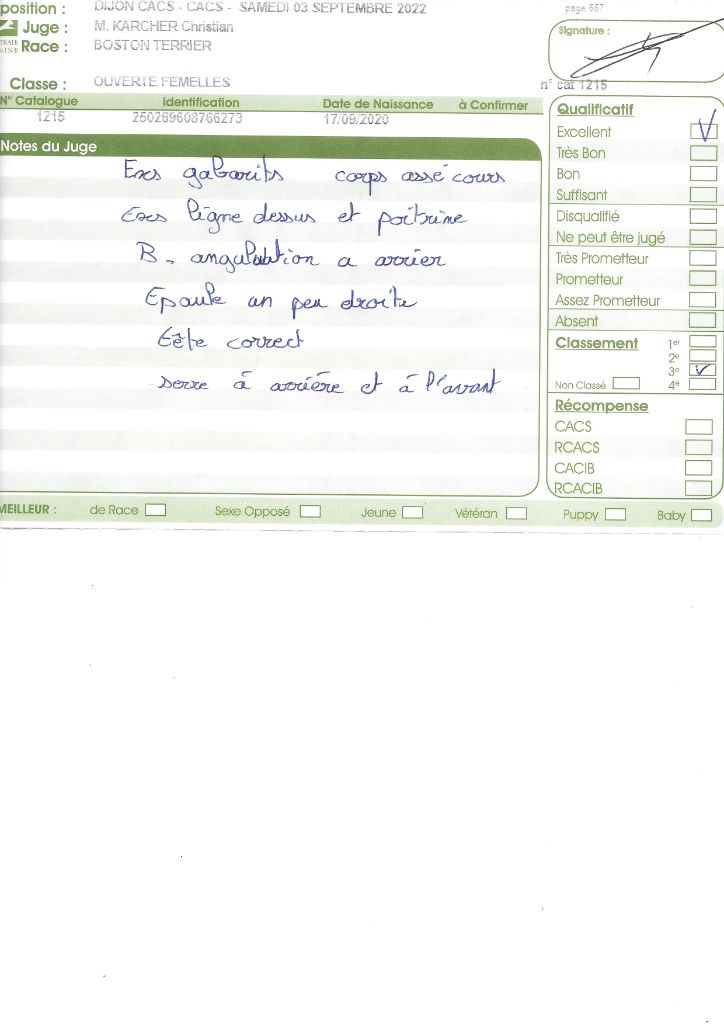 position : DIJON CACS - CACS - SAMEDI 03 SEPTEMBRE 2022
page 667
Juge : M. KARCHER Christian
TRALE
NINE
Race : BOSTON TERRIER
Signature :
Classe : OUVERTE FEMELLES
n° cat 1215
N° Catalogue Identification Date de Naissance à Confirmer
1215 250269608766273 17/09/2020
Notes du Juge
Excs gabarits corps assé cours
Excs ligne dessus et poitrine
B. angulation a arrier
Epaule un peu droite
tête correct
serre à arrière et à l'avant
Qualificatif
Excellent
Très Bon
Bon
Suffisant
Disqualifié
Ne peut être jugé
Très Prometteur
Prometteur
Assez Prometteur
Absent
Classement 1er
2e
3e
Non Classé 4e
Récompense
CACS
RCACS
CACIB
RCACIB
MEILLEUR : de Race Sexe Opposé Jeune Vétéran Puppy Baby